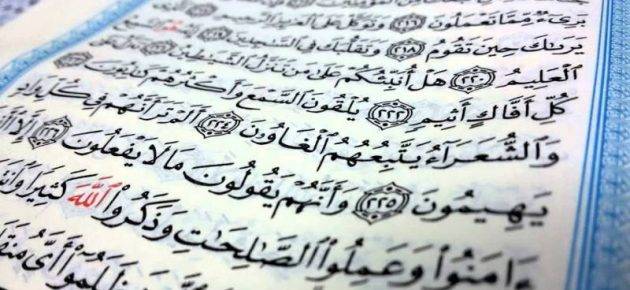 بَرِىٓءٌ مِّمَّا تَعْمَلُونَ ٢١٦ وَتَوَكَّلْ عَلَى ٱلْعَزِيزِ ٱلرَّحِيمِ
يَرَىٰكَ حِينَ تَقُومُ ٢١٨ وَتَقَلُّبَكَ فِى ٱلسَّٰجِدِينَ
ٱلْعَلِيمُ ٢٢٠ هَلْ أُنَبِّئُكُمْ عَلَىٰ مَن تَنَزَّلُ ٱلشَّيَٰطِينُ
كُلِّ أَفَّاكٍ أَثِيمٍ ٢٢٢ يُلْقُونَ ٱلسَّمْعَ وَأَكْثَرُهُمْ كَٰذِبُونَ
وَٱلشُّعَرَآءُ يَتَّبِعُهُمُ ٱلْغَاوُۥنَ ٢٢٤ أَلَمْ تَرَ أَنَّهُمْ فِى كُلِّ وَادٍ
يَهِيمُونَ ٢٢٥ وَأَنَّهُمْ يَقُولُونَ مَا لَا يَفْعَلُونَ ٢٢٦ إِلَّا
ءَامَنُوا۟ وَعَمِلُوا۟ ٱلصَّٰلِحَٰتِ وَذَكَرُوا۟ ٱللَّهَ كَثِيرًا
أَىَّ